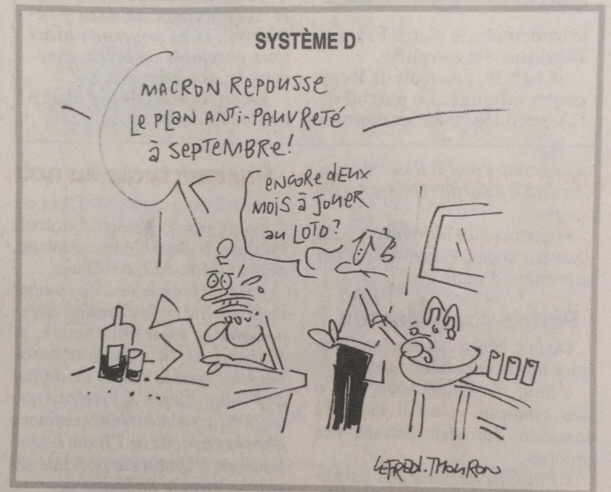 SYSTÈME D
MACRON REPOUSSE
LE PLAN ANTI-PAUVRETÉ
à SEPTEMBRE!
ENCORE dEUX
MOIS à JOUER
au LOTO?
LEFRED-THOURON